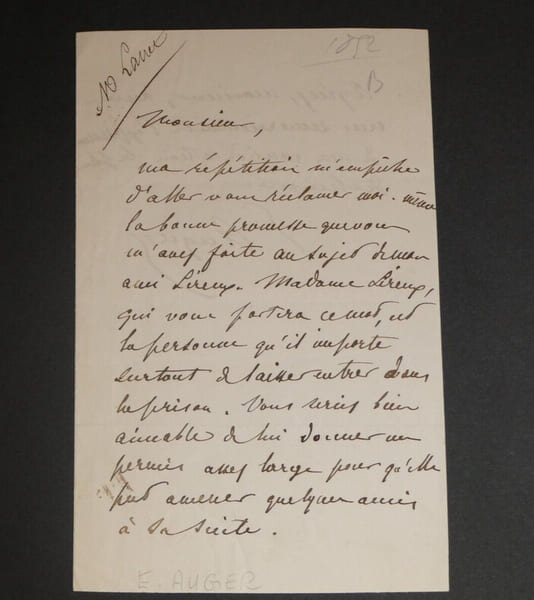 1852
B
Monsieur,
ma répétition m'empêche
d'aller vous réclamer moi-même
la bonne promesse que vous
m'avez faite au sujet de mon
ami Lireux. Madame Lireux,
qui vous portera ce mot, est
la personne qu'il importe
surtout de laisser entrer dans
la prison. Vous seriez bien
aimable de lui donner un
permis assez large pour qu'elle
pût amener quelques amis
à sa suite.
E. AUGER